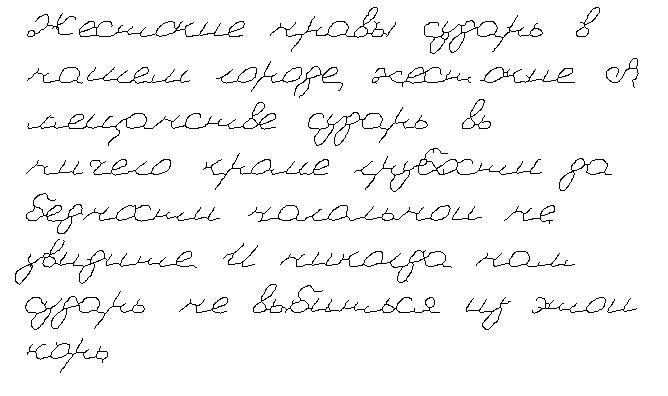 Жестокие нравы сударь в
нашем городе, жестокие В
мещанстве сударь вы
ничего кроме грубости да
бедности нагольной не
увидите И никогда нам
сударь не выбиться из этой
коры